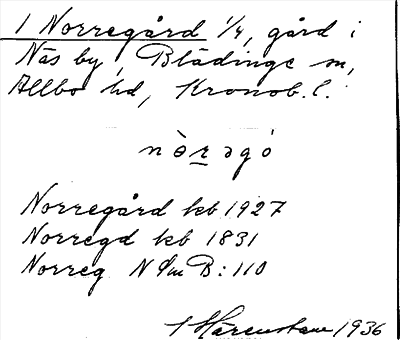 1 Norregård 1/4, gård i
Näs by, Blädinge sn,
Allbo hd, Kronob. l.
nòrəgó
Norregård kb 1927
Norregd kb 1831
Norreg N Sm B: 110
1936